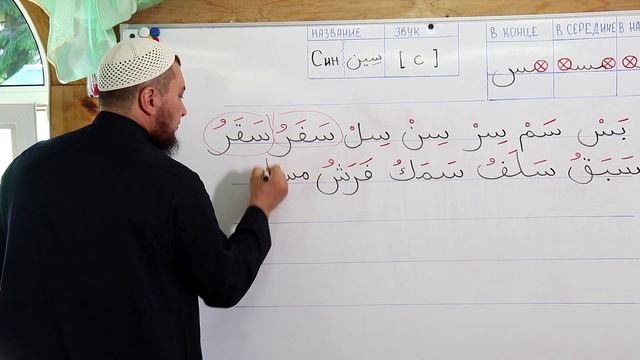 НАЗВАНИЕ ЗВУК В КОНЦЕ В СЕРЕДИНЕ В НА
Син سِين [ с ] ـس ـسـ
بَسْ سَمْ سِرْ سِنْ سِلْ سَفَرُ سَقَرُ
سَبَقُ سَلَفُ سَمَكُ فَرَشُ مسـ